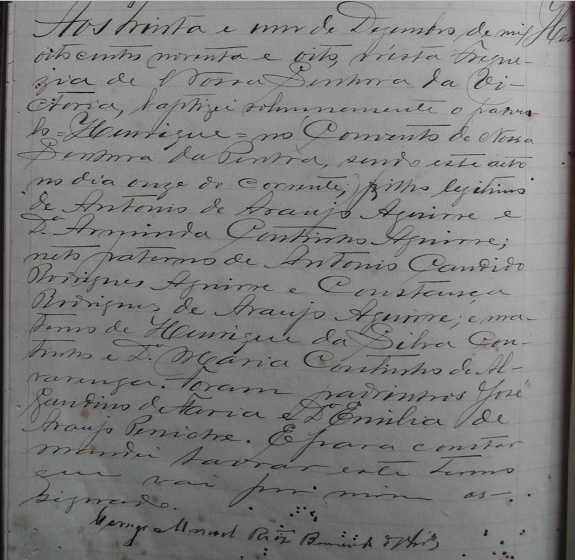 Aos trinta e um de Dezembro de mil
oitocentos noventa e oito, n'esta fregue-
zia de Nossa Senhora da Vi-
ctoria, baptizei solemnemente o parvu-
lo = Henrique = no Convento de Nossa
Senhora da Penha, sendo este acto
no dia onze do corrente, filho legitimo
de Antonio de Araujo Aguirre e
D.ª Arminda Coutinho Aguirre;
neto paterno de Antonio Candido
Rodrigues Aguirre e Constança
Rodrigues de Araujo Aguirre; e ma-
terno de Henrique da Silva Cou-
tinho e D.ª Maria Coutinho de Al-
varenga. Foram padrinhos José
Gaudino de Faria e D.ª Emilia de
Araujo Peniche. E para constar
mandei lavrar este termo
que vai por mim as-
signado.
Conego Manoel